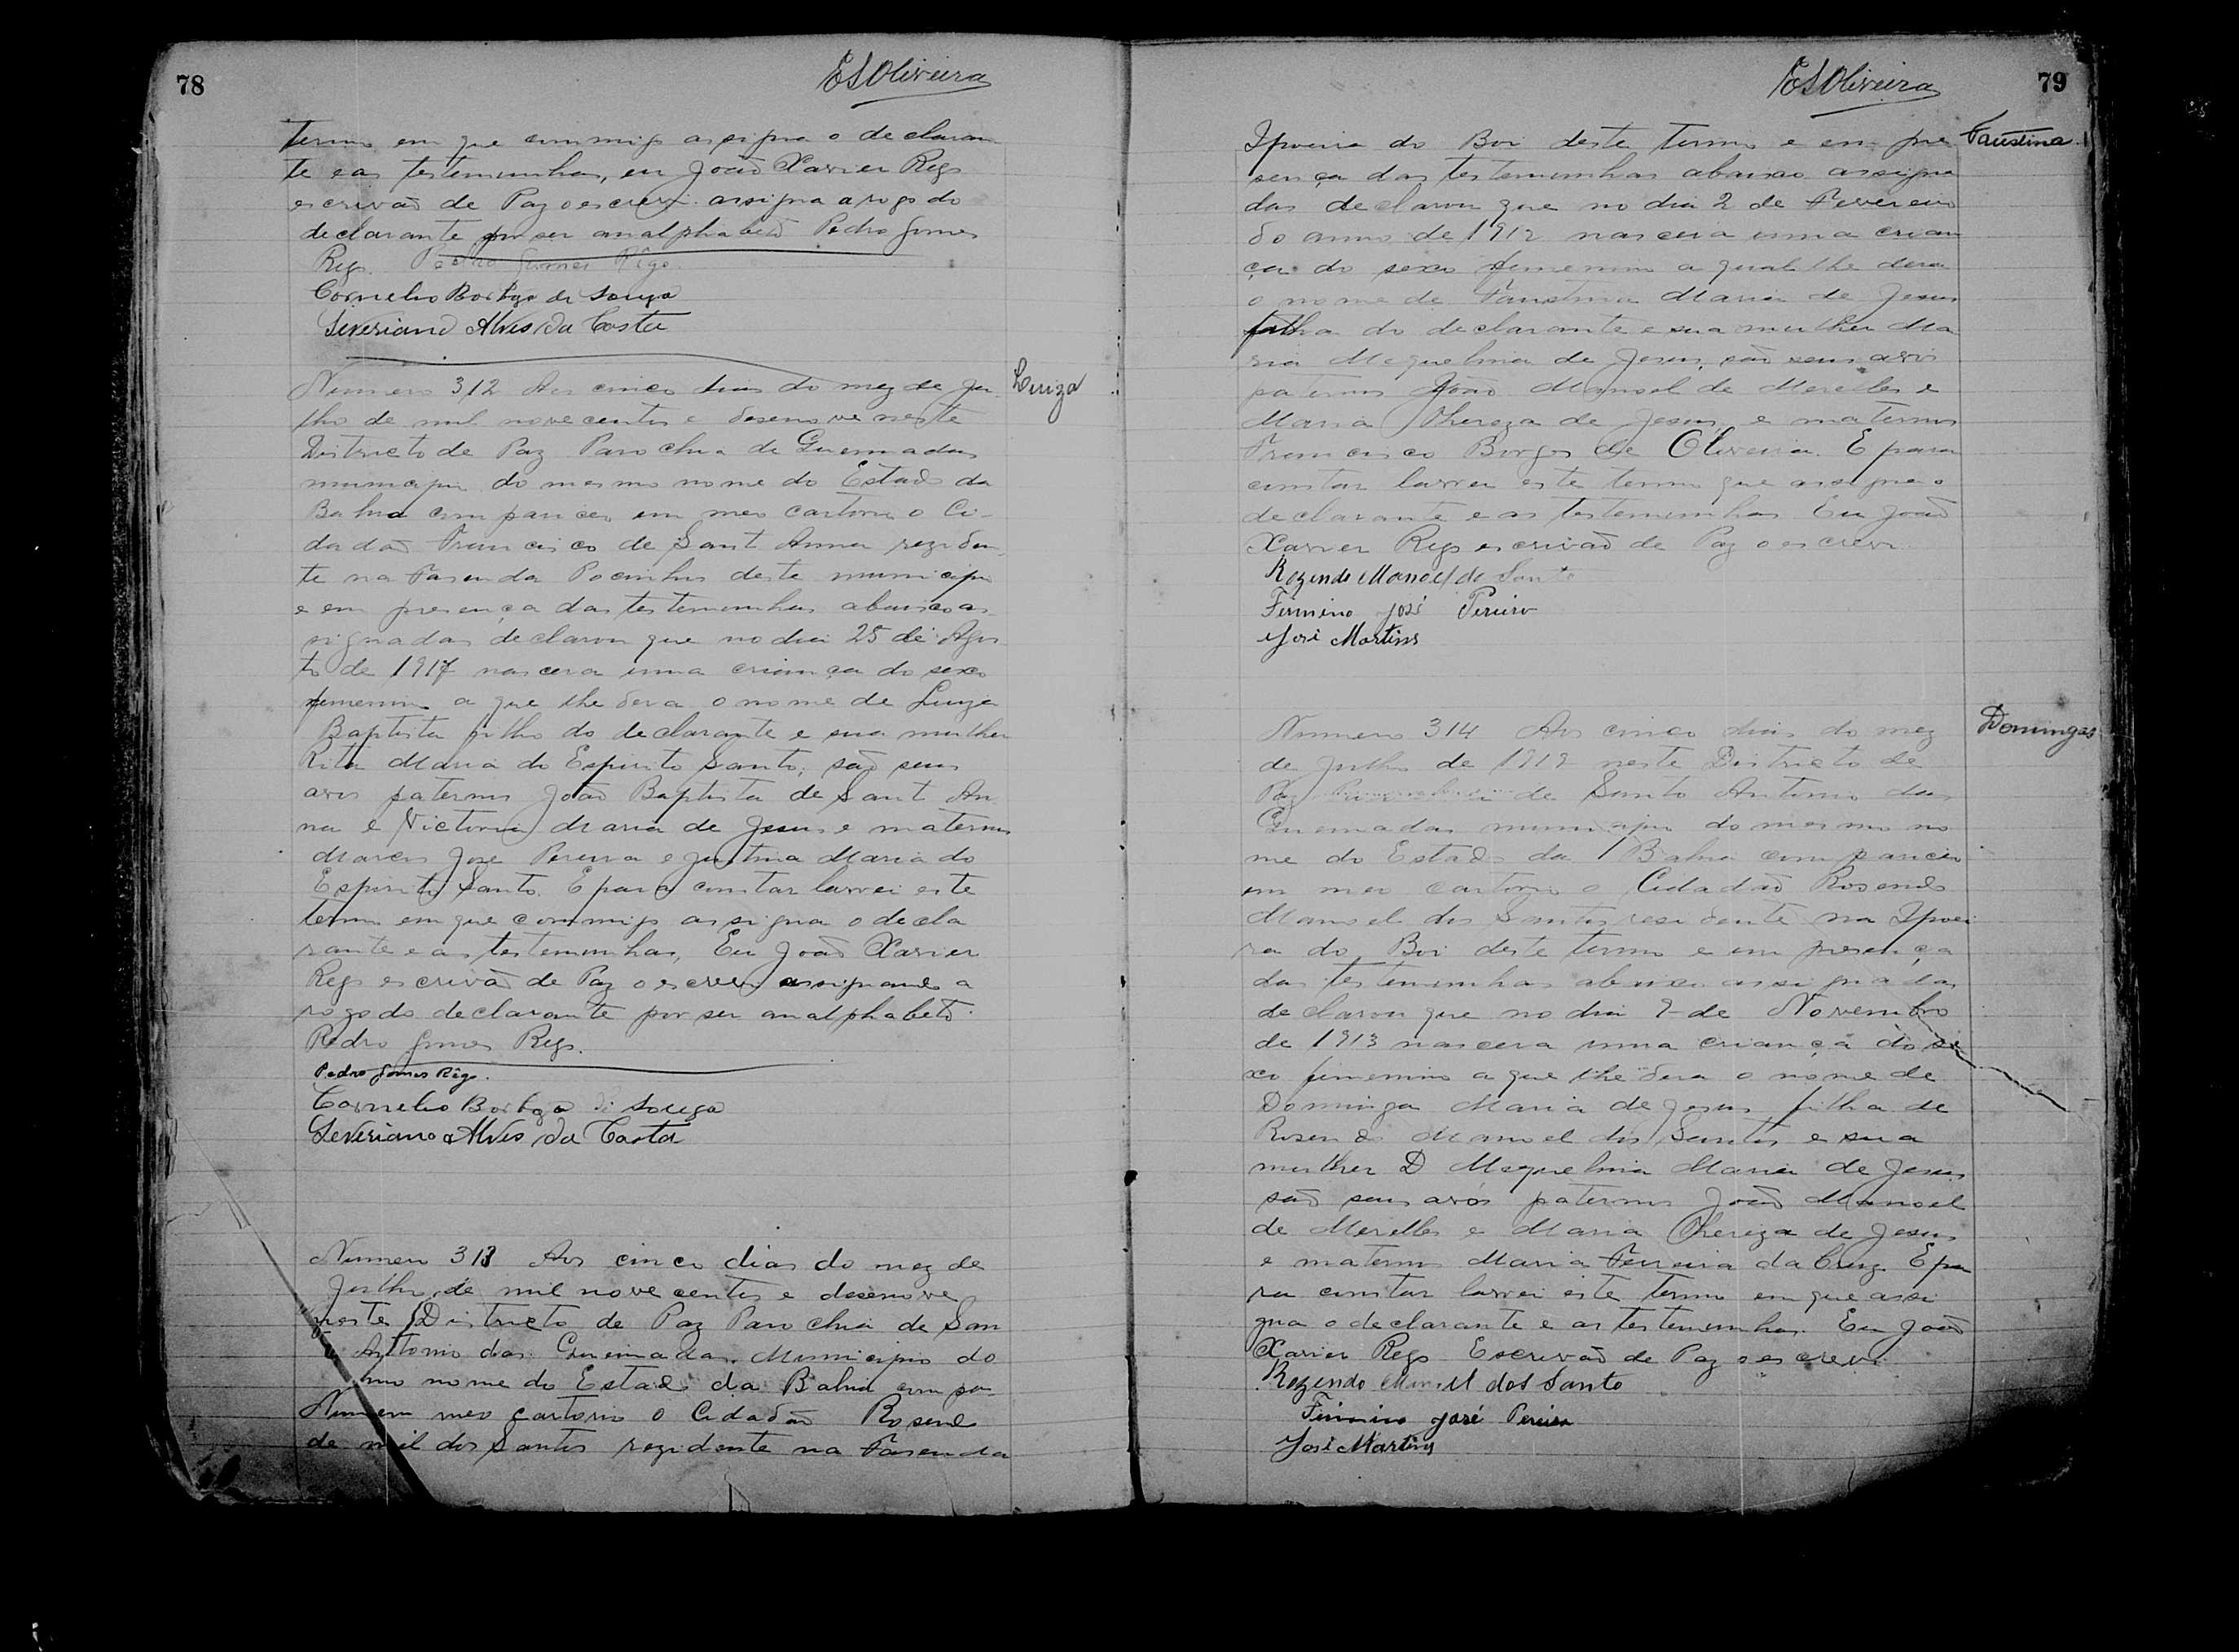 78
ESOliveira
termo em que commigo assigna o declaran
te e as testemunhas, eu João Xavier Rego
escrivão de Paz o escrevi assigna a rogo do
declarante por ser analphabeto Pedro Gomes
Rego. Pedro Gomes Rêgo.
Cornelio Borges de Souza
Severiano Alves da Costa
Luiza
Numero 312 Aos cinco dias do mez de Ju
lho de mil nove centos e desenove neste
Districto de Paz Parochia de Queimadas
municipio do mesmo nome do Estado da
Bahia compareceu em meo cartorio o Ci-
dadão Francisco de Sant Anna reziden
te na Fasenda Pocinhos deste municipio
e em presença das testemunhas abaixo as
signadas declarou que no dia 25 de Agos
to de 1917 nascera uma criança do sexo
femenino a que lhe dera o nome de Luiza
Baptista filha do declarante e sua mulher
Rita Maria do Espirito Santo, são seus
avos paternos João Baptista de Sant An
na e Victoria Maria de Jesus e maternos
Marcos Jose Pereira e Justina Maria do
Espirito Santo. E para constar lavrei este
termo em que commigo assigna o decla
rante e as testemunhas, Eu João Xavier
Rego escrivão de Paz o escrevi assignando a
rogo do declarante por ser analphabeto.
Pedro Gomes Rego.
Pedro Gomes Rêgo.
Cornelio Borges di Souza
Severiano Alves da Costa
Numero 313 Aos cinco dias do mez de
Julho de mil nove centos e desenove
neste Districto de Paz Parochia de San
to Antonio das Queimadas. Municipio do
mo nome do Estado da Bahia compa-
em meo cartorio o Cidadão Rosend
dos Santos rezidente na Fasenda
79
ESOliveira
Faustina
Ipoeira do Boi deste termo e em pre
sença das testemunhas abaixo assigna
das declarou que no dia 2 de Fevereiro
do anno de 1912 nascera uma crian
ça do sexo femenino a qual lhe dera
o nome de Faustina Maria de Jesus
filha do declarante e sua mulher Ma
ria Miquelina de Jesus, são seus avós
paternos João Manoel de Merelles e
Maria Thereza de Jesus, e maternos
Francisco Borges de Oliveira. E para
constar lavrei este termo que assigna o
declarante e as testemunhas Eu João
Xavier Rego escrivão de Paz o escrevi.
Rozendo Manoel do Santo
Firmino José Pereira
José Martins
Domingas
Numero 314 Aos cinco dias do mez
de Julho de 1919 neste Districto de
Paz Parochia de Santo Antonio das
Queimadas municipio do mesmo no
me do Estado da Bahia compareceu
em meo cartorio o Cidadão Rosendo
Manoel dos Santos residente na Ipoei
ra do Boi deste termo e em presença
das testemunhas abaixo assignadas
declarou que no dia de Novembro
de 1913 nascera uma criança do se
xo femenino a que lhe dera o nome de
Dominga Maria de Jesus filha de
Rosendo Manoel dos Santos e sua
mulher D Miquelina Maria de Jesus
são seus avós paternos João Manoel
de Merelles e Maria Thereza de Jesus
e maternos Maria Ferreira da Cruz. E pa
ra constar lavrei este termo em que assi
gna o declarante e as testemunhas. Eu João
Xavier Rego Escrivão de Paz o escrevi
Rozendo Manoel dos Santo
Firmino José Pereira
José Martins